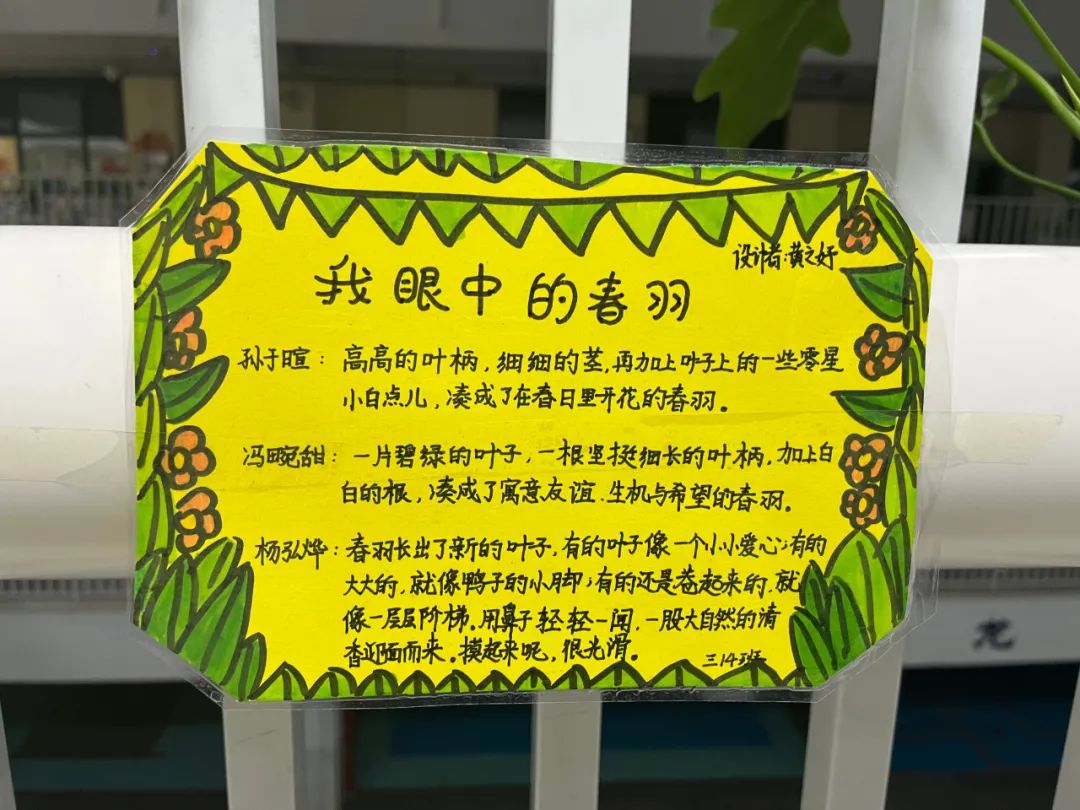 设计者:黄之妤
我眼中的春羽
孙于暄：高高的叶柄，细细的茎，再加上叶子上的一些零星
小白点儿，凑成了在春日里开花的春羽。
冯畹甜：一片碧绿的叶子，一根坚挺细长的叶柄，加上白
白的根，凑成了寓意友谊、生机与希望的春羽。
杨弘烨：春羽长出了新的叶子，有的叶子像一个小小爱心；有的
大大的，就像鸭子的小脚；有的还是卷起来的，就
像一层层阶梯。用鼻子轻轻一闻，一股大自然的清
香迎面而来。摸起来呢，很光滑。
三14班
龙